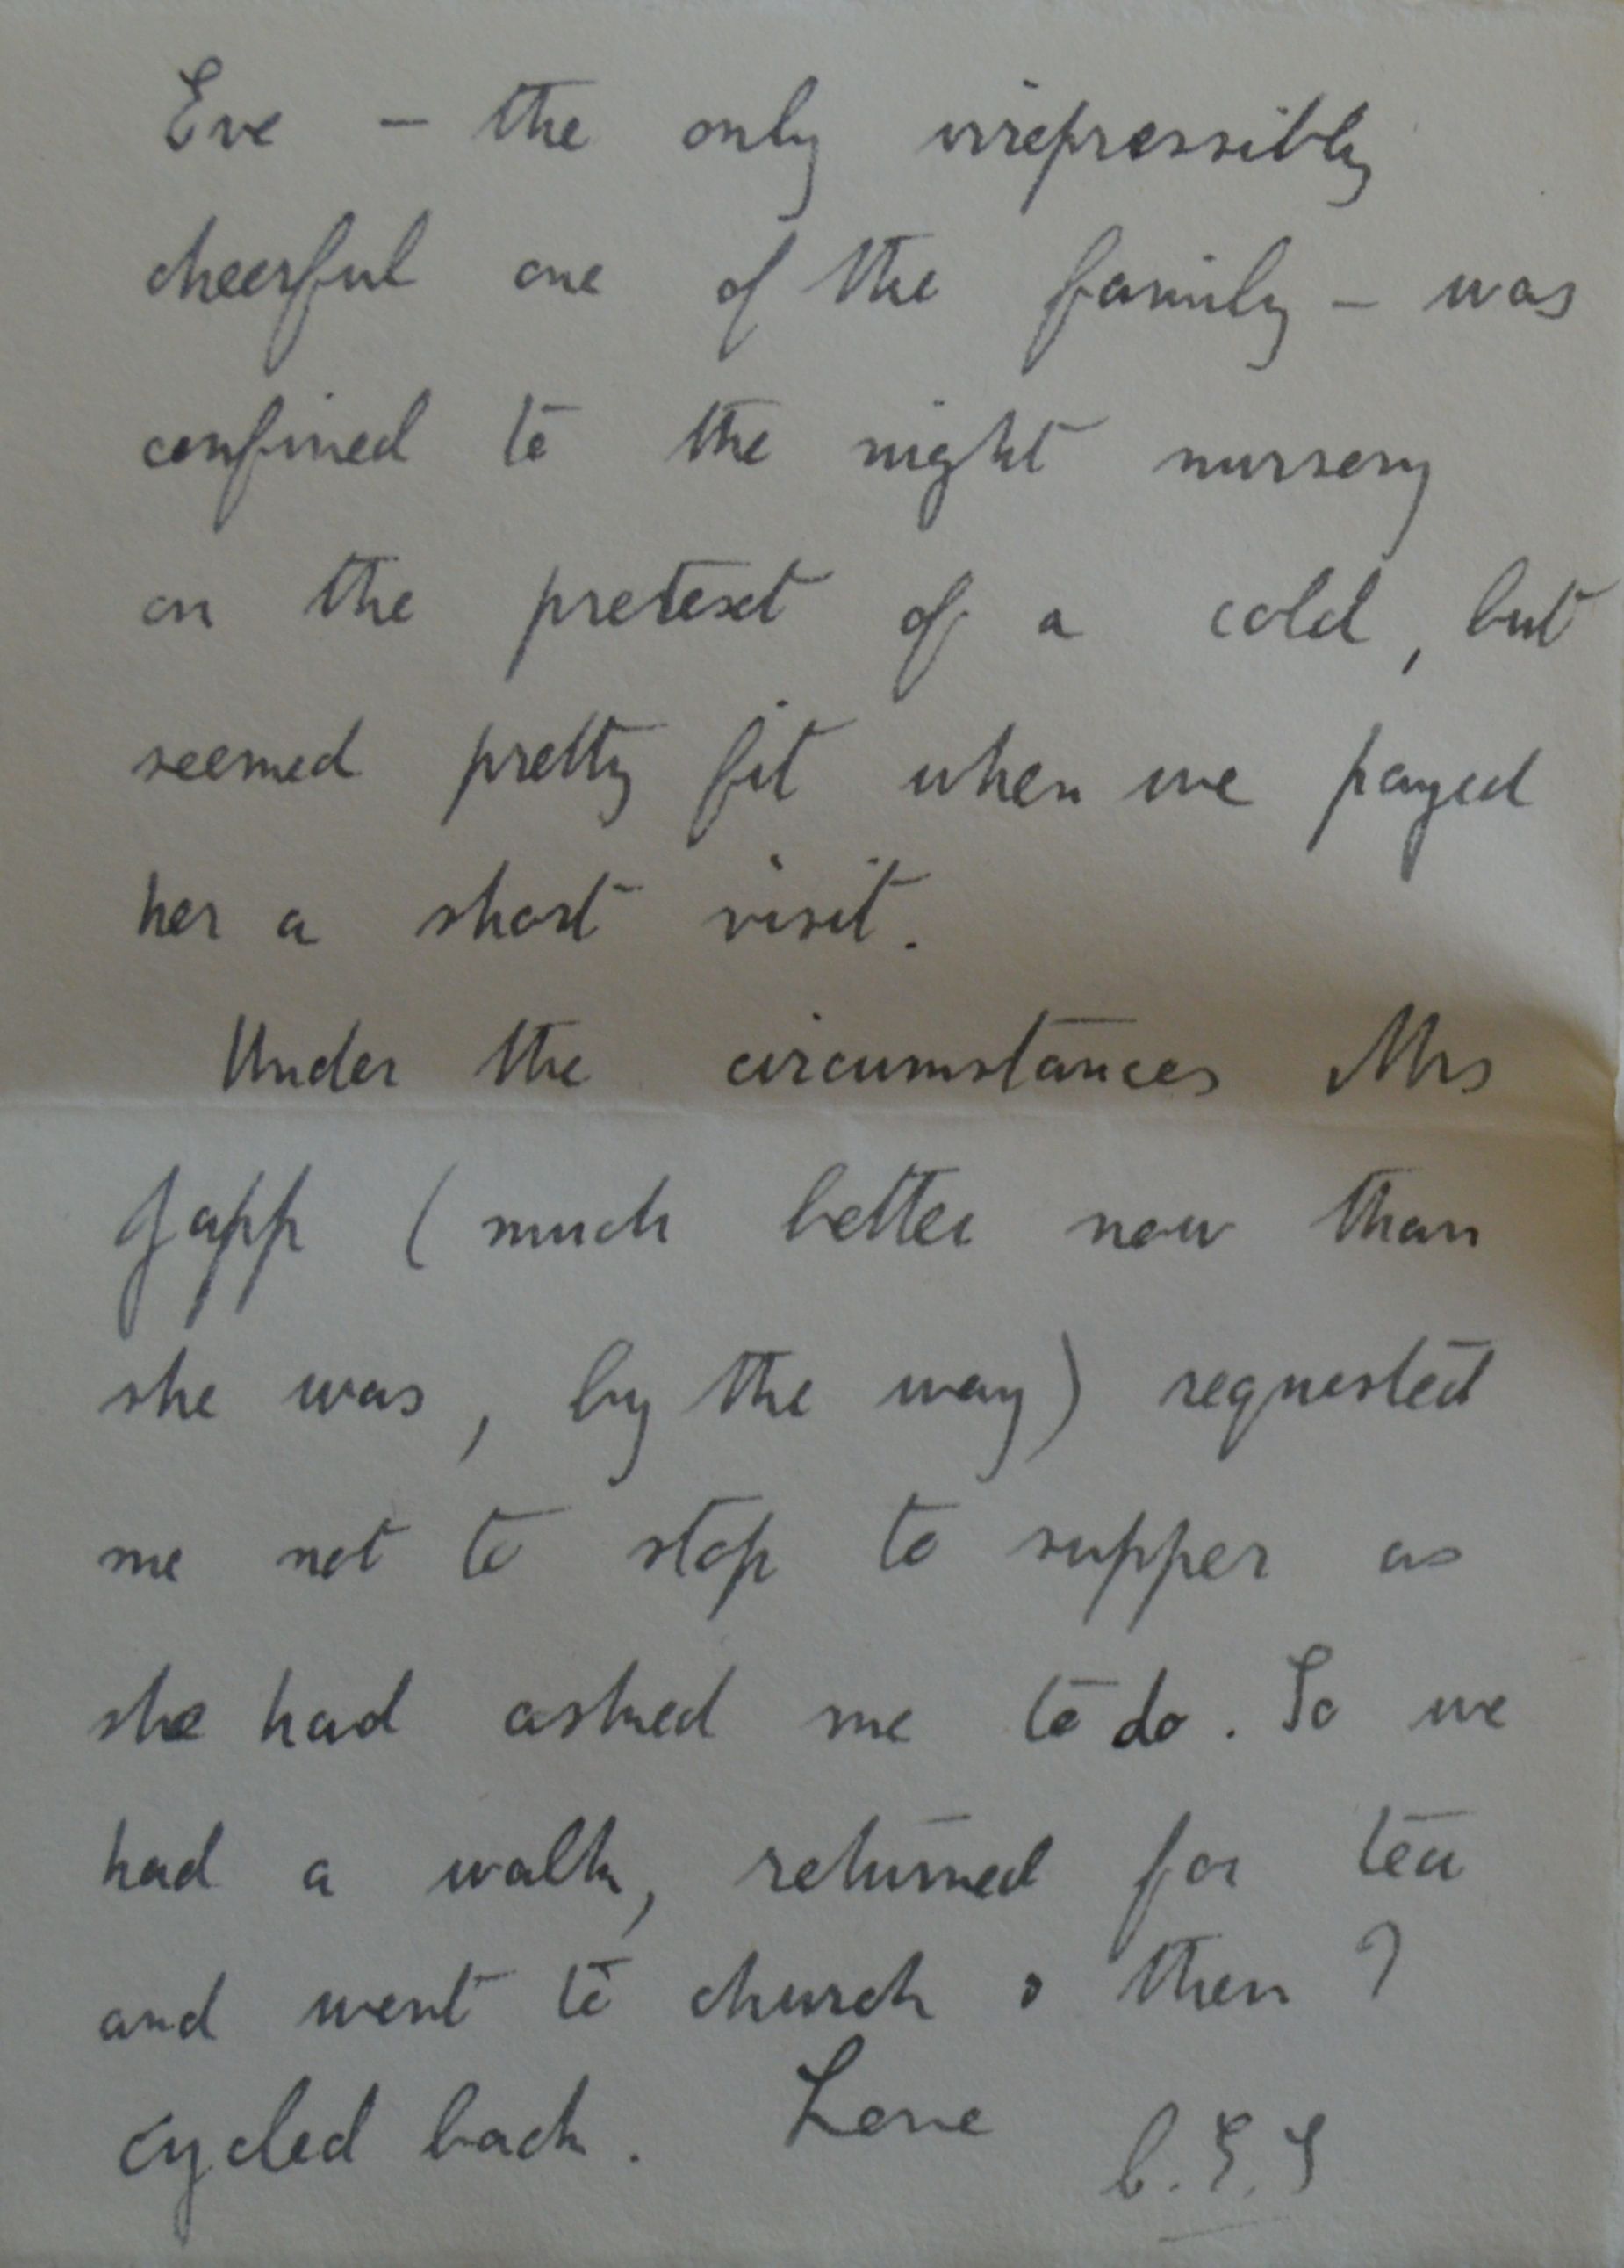 Eve – the only irrepressibly
cheerful one of the family – was
confined to the night nursery
on the pretext of a cold, but
seemed pretty fit when we payed
her a short visit.
Under the circumstances Mrs
Japp (much better now than
she was, by the way) requested
me not to stop to supper as
she had asked me to do. So we
had a walk, returned for tea
and went to church & then ?
cycled back. Love